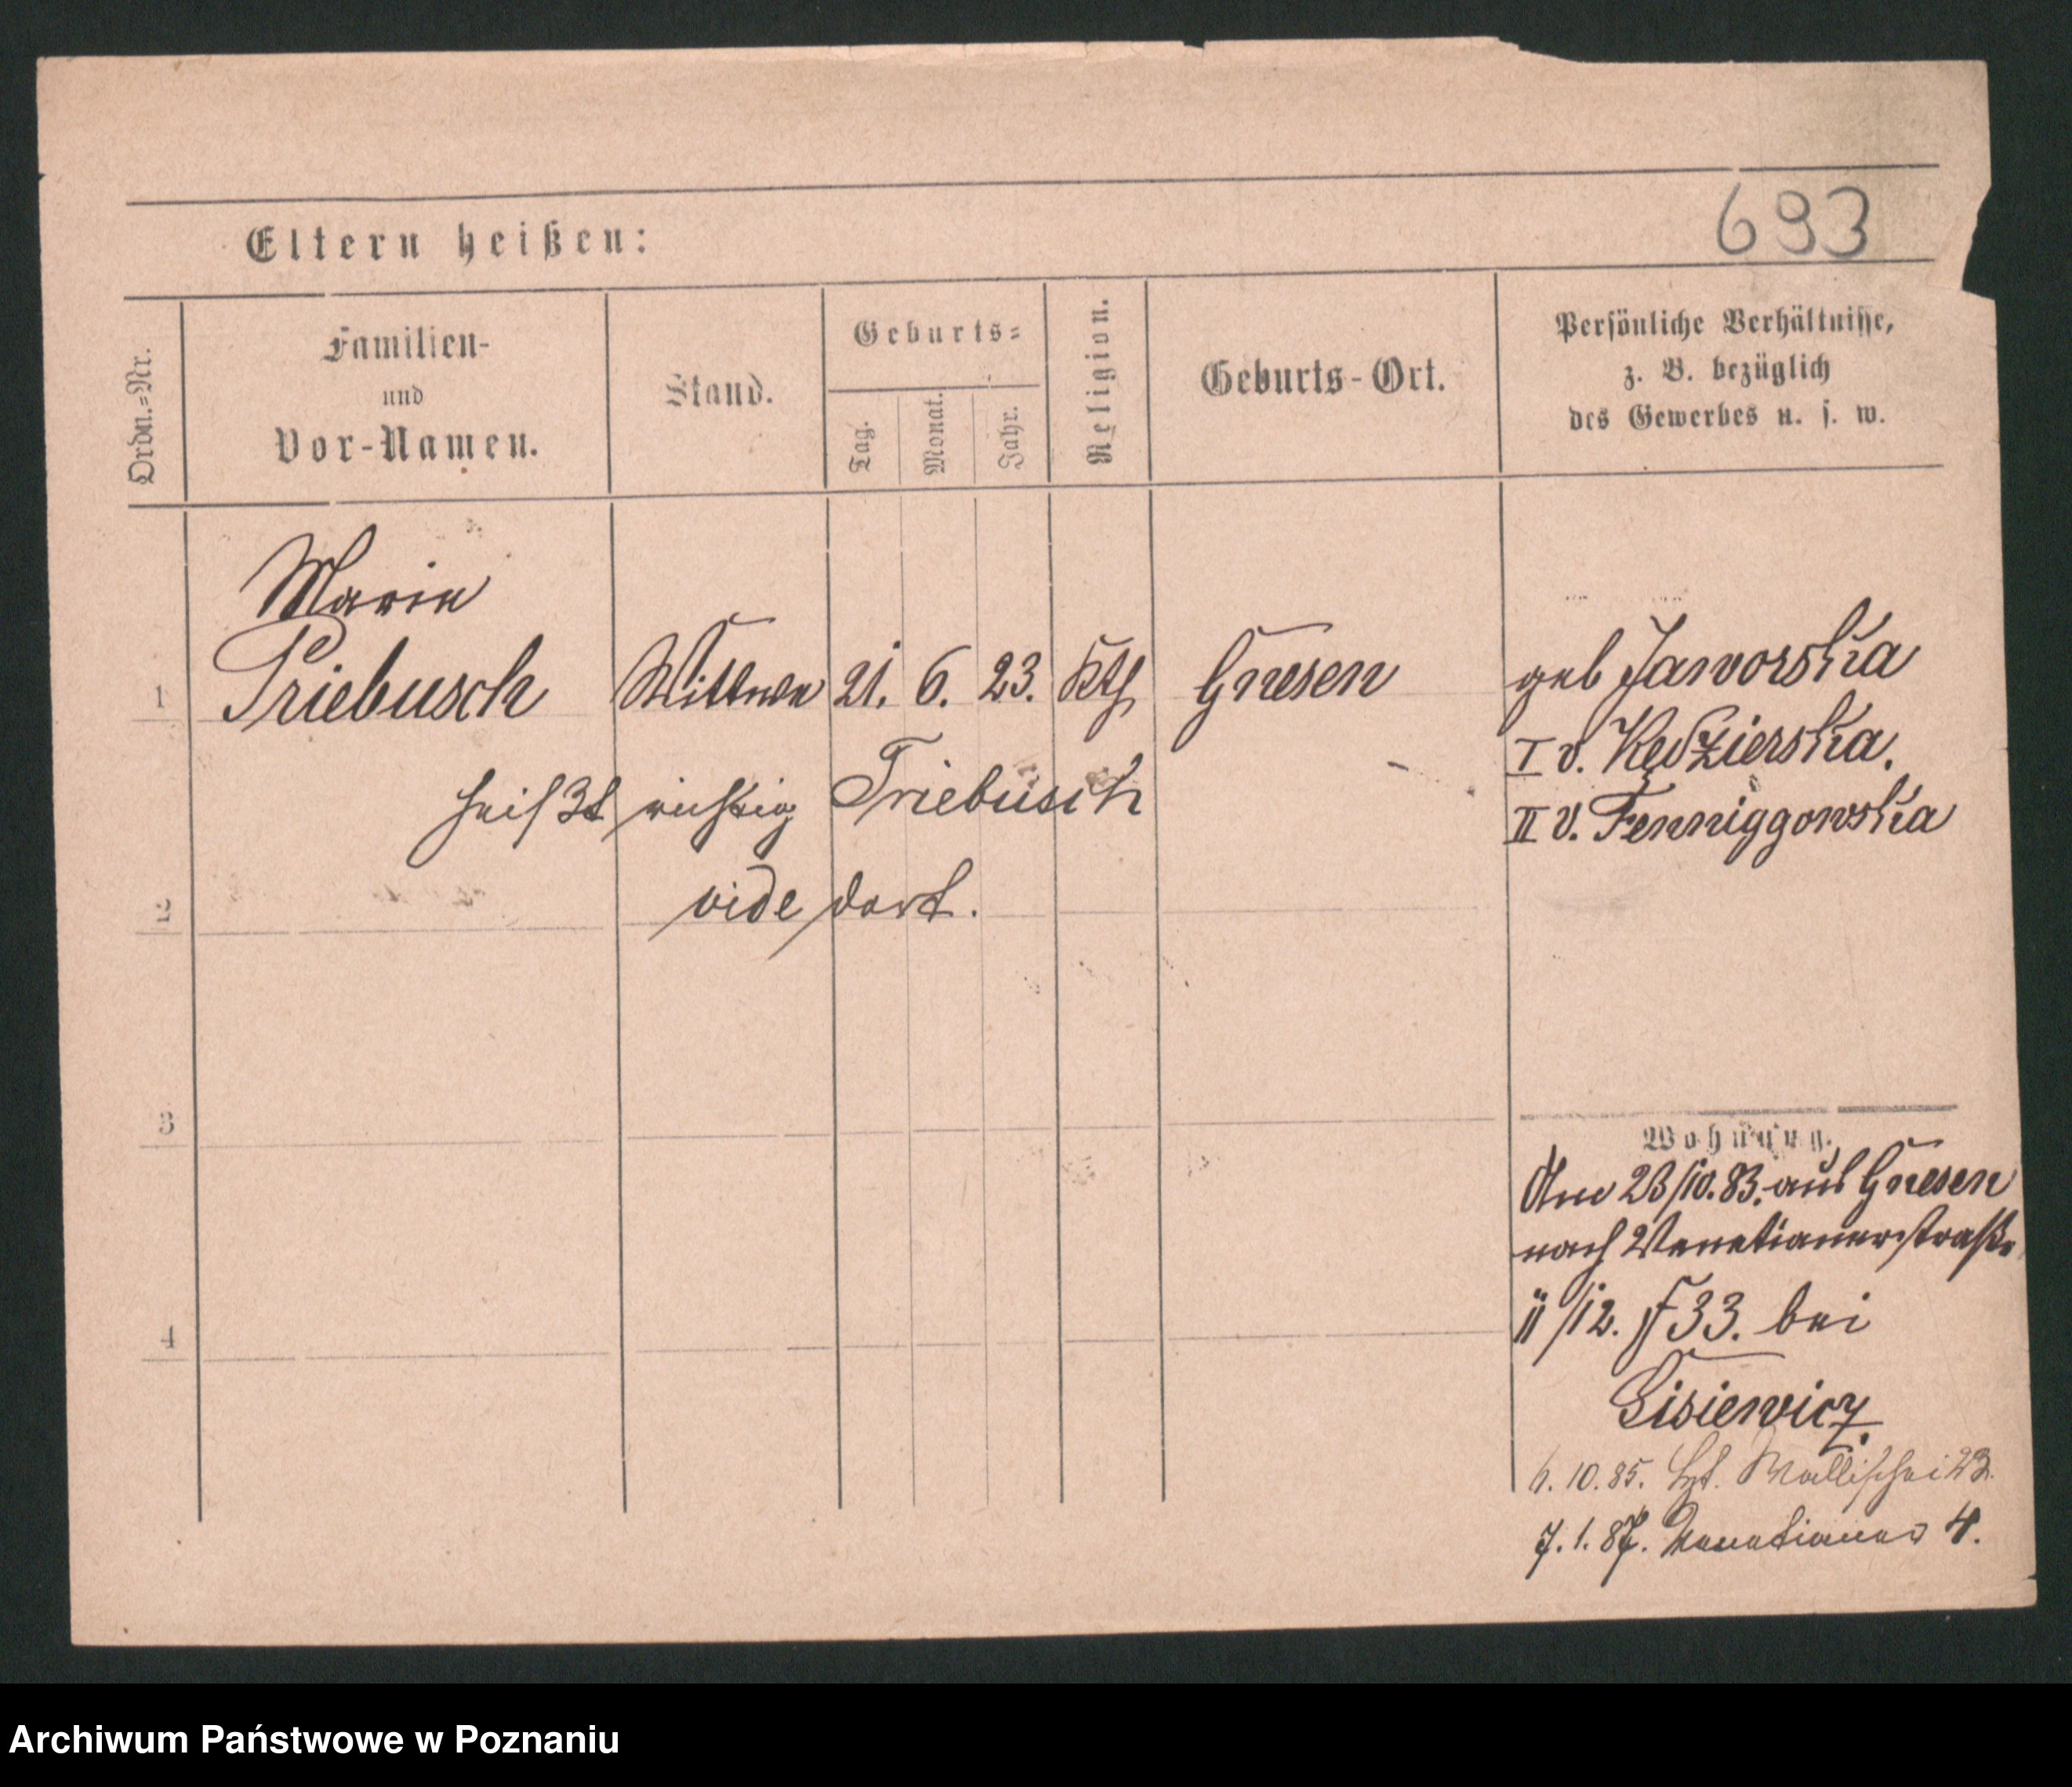 693
Eltern heißen:
Ordn.=Nr.
Familien-
und
Vor-Namen.
Stand.
Geburts=
Tag.
Monat.
Jahr.
Religion.
Geburts-Ort.
Persönliche Verhältnisse,
z. B. bezüglich
des Gewerbes u. s. w.
Marie
1 Priebusch Wittwe 21. 6. 23. Kth Gnesen
geb Jaworska
I v. Kedzierska.
II v. Fenniggowska
heißt richtig Triebusch
2 vide dort.
3
4
Wohnung.
Am 23/10.83. aus Gnesen
nach Venetianerstraße
11/12. F 33. bei
Lisiewicz.
6.10.85. Wallischei 23.
7.1.87. Venetianer 4.
Archiwum Państwowe w Poznaniu